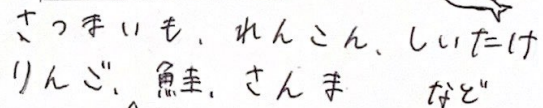 さつまいも、れんこん、しいたけ
りんご、鮭、さんま など